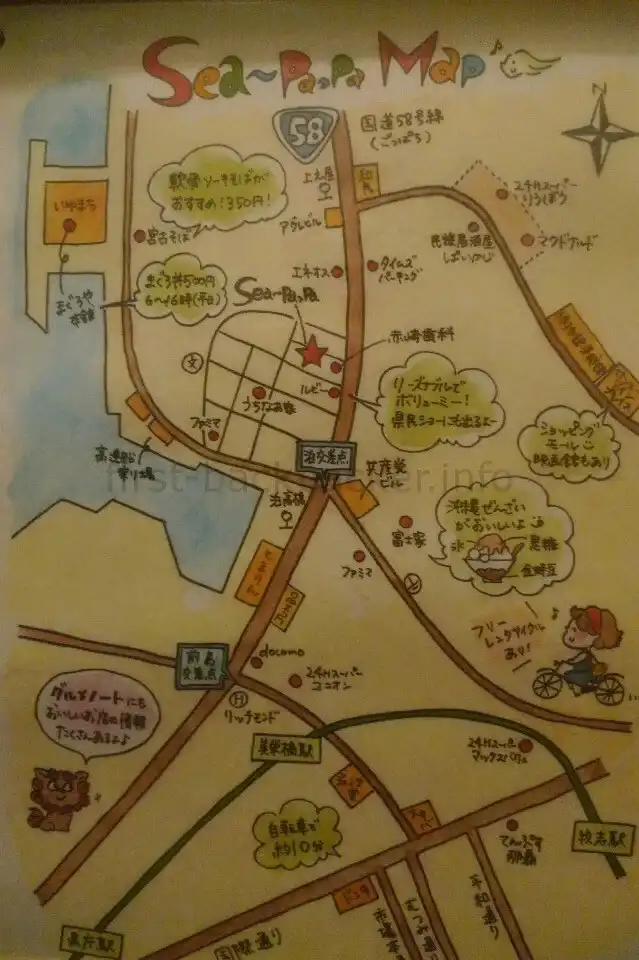 Sea~Pa.Pa Map
58
国道58号線
(ごっぱち)
N
軟骨ソーキそばが
おすすめ!350円!
上之屋
いゆまち
宮古そば
アダレビル
24Hスーパー
りうぼう
民族居酒屋
ぱいかじ
マクドナルド
まぐろ丼500円
6~16時(平日)
まぐろや
本舗
エネオス
タイムズ
パーキング
Sea~Pa.Pa
赤崎歯科
文
ルビー
うちなぁ家
ファミマ
リーズナブルで
ボリューミー!
県民ショーにも出るよー
ショッピング
モール
映画館もあり
高速船
乗り場
泊交差点
共産党
ビル
first-backpacker.info
泊高橋
とまりん
富士家
ファミマ
沖縄ぜんざい
がおいしいよ
氷
黒糖
金時豆
フリー
レンタサイクル
あり!
前島
交差点
docomo
24Hスーパー
ユニオン
H
リッチモンド
グルメノートにも
おいしいお店の情報
たくさんあるよ♪
美栄橋駅
24Hスーパー
マックスバリュ
自転車で
約10分
スタバ
てんぶす
那覇
牧志駅
ドンキ
県庁駅
国際通り
市場本
むつみ通り
平和通り